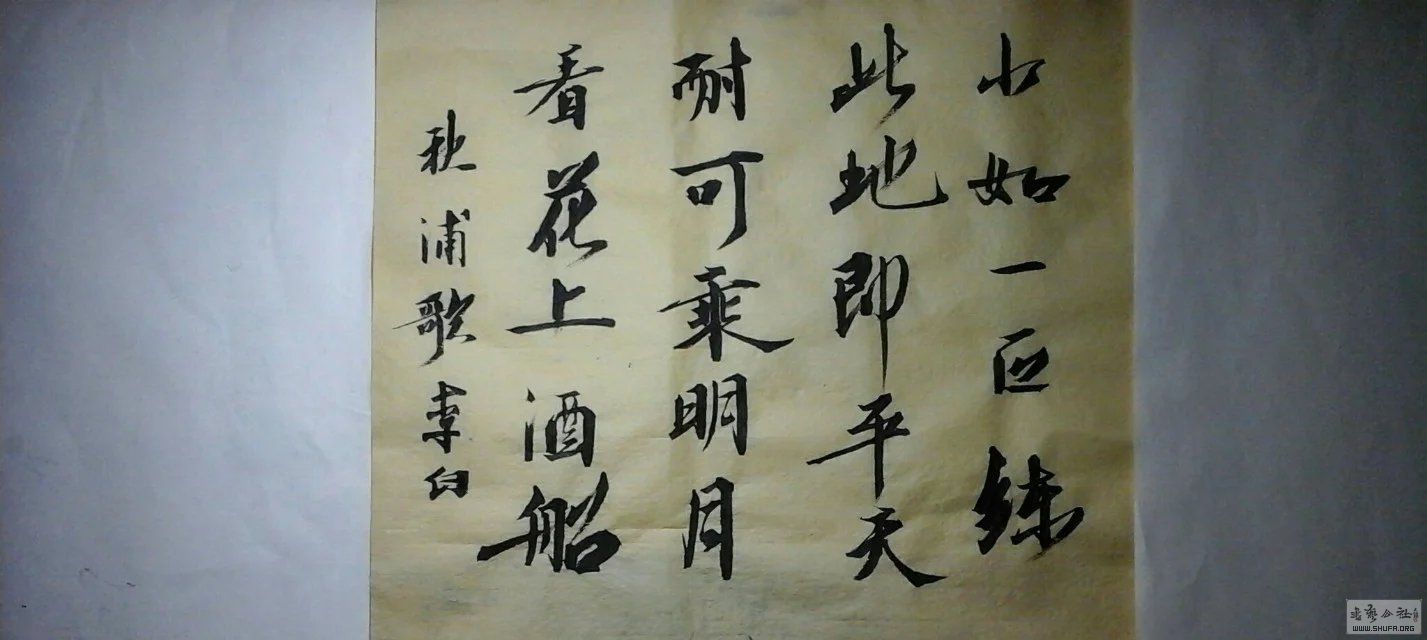 水如一匹练
此地即平天
耐可乘明月
看花上酒船
秋浦歌李白
書藝公社
WWW.SHUFA.ORG